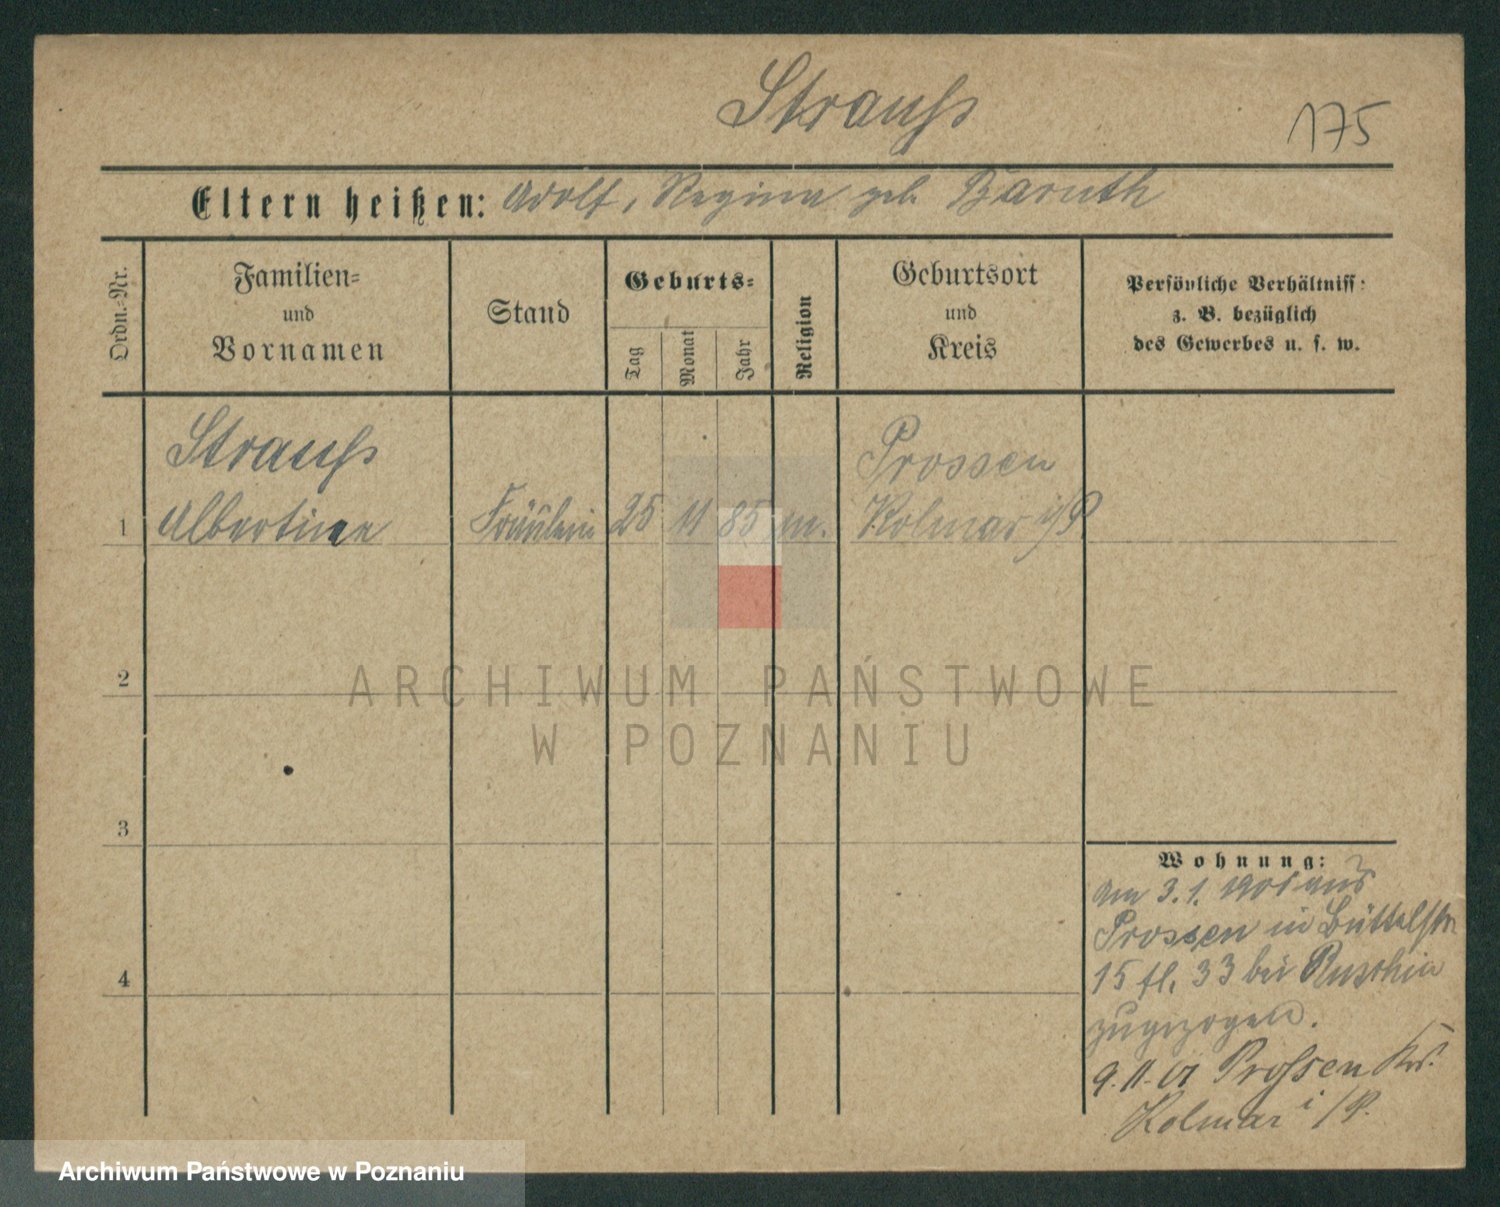 Strauß
175
Eltern heißen: Adolf, Regina geb. Baruth
Ordn.-Nr.
Familien-
und
Vornamen
Stand
Geburts-
Tag
Monat
Jahr
Religion
Geburtsort
und
Kreis
Persönliche Verhältniss:
z. B. bezüglich
des Gewerbes u. s. w.
Strauß
Prossen
1 Albertine Fräulein 25 11 85 m. Kolmar i/P
2
3
4
Wohnung:
am 3.1. 1901 aus
Prossen in Büttelstr.
15 fl. 33 bei
zugezogen.
9.11.01 Prossen Krs.
Kolmar i/P.
ARCHIWUM PAŃSTWOWE
W POZNANIU
Archiwum Państwowe w Poznaniu